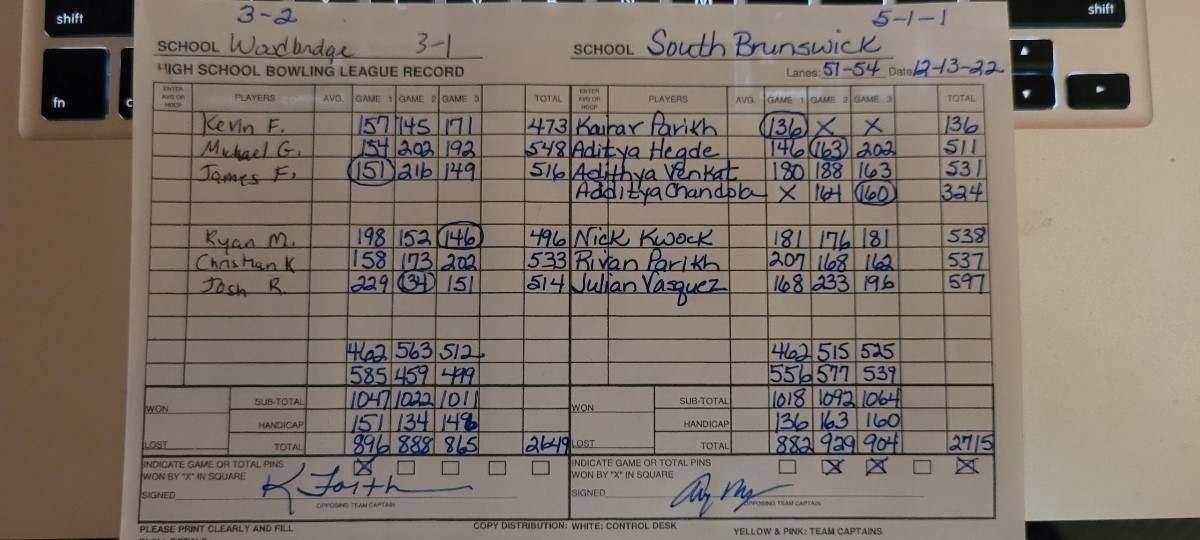 shift
shift
fn
3-2
5-1-1
SCHOOL Woodbridge 3-1
SCHOOL South Brunswick
HIGH SCHOOL BOWLING LEAGUE RECORD
Lanes: 51-54 Date 12-13-22
ENTER AVG OR HDCP PLAYERS AVG. GAME 1 GAME 2 GAME 3 TOTAL ENTER AVG OR HDCP PLAYERS AVG. GAME 1 GAME 2 GAME 3 TOTAL
Kevin F. 157 145 171 473 Kairar Parikh 136 X X 136
Michael G. 154 202 192 548 Aditya Hegde 146 163 202 511
James F. 151 216 149 516 Adithya Venkat 180 188 163 531
Additya Chandola X 164 160 324
Ryan M. 198 152 146 496 Nick Kwock 181 176 181 538
Christian K 158 173 202 533 Rivan Parikh 207 168 162 537
Josh R. 229 134 151 514 Julian Vasquez 168 233 196 597
462 563 512 462 515 525
585 459 499 556 577 539
WON SUB-TOTAL 1047 1022 1011 WON SUB-TOTAL 1018 1092 1064
HANDICAP 151 134 146 HANDICAP 136 163 160
LOST TOTAL 896 888 865 2649 LOST TOTAL 882 929 904 2715
INDICATE GAME OR TOTAL PINS X INDICATE GAME OR TOTAL PINS X X X
WON BY "X" IN SQUARE WON BY "X" IN SQUARE
SIGNED K Faith SIGNED
OPPOSING TEAM CAPTAIN OPPOSING TEAM CAPTAIN
PLEASE PRINT CLEARLY AND FILL COPY DISTRIBUTION: WHITE: CONTROL DESK YELLOW & PINK: TEAM CAPTAINS